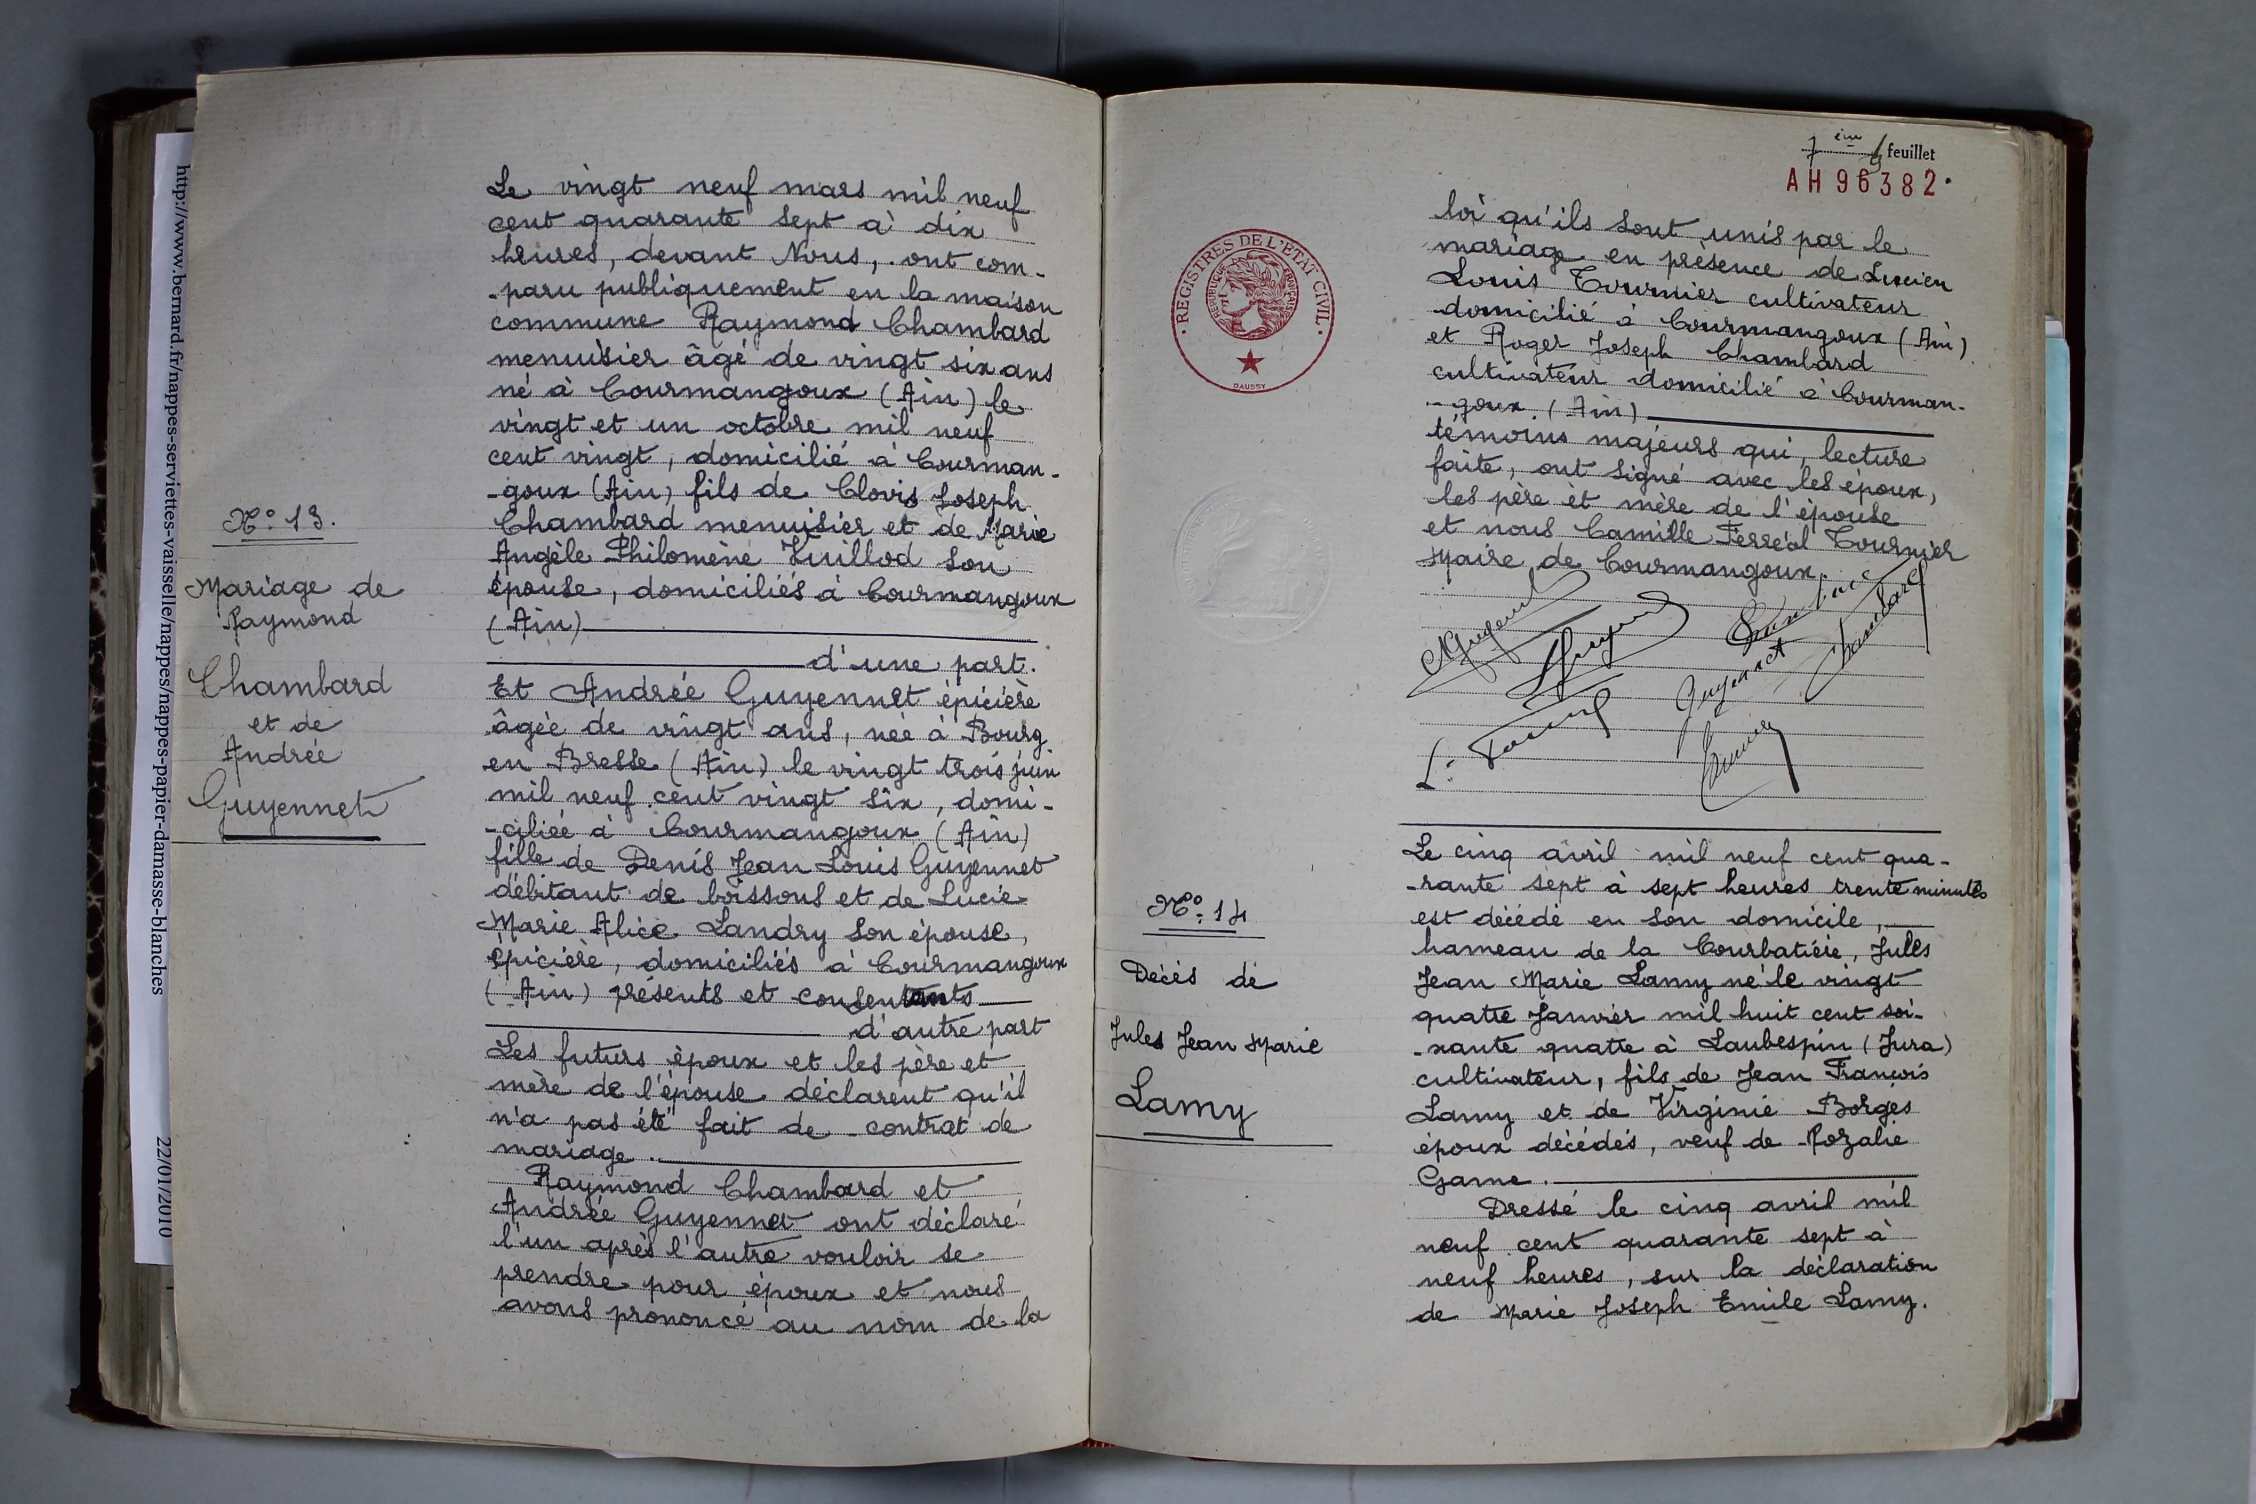 http://www.bernard.fr/nappes-serviettes-vaisselle/nappes/nappes-papier-damasse-blanches
22/01/2010
N° 13.
Mariage de
Raymond
Chambard
et de
Andrée
Guyennet
Le vingt neuf mars mil neuf
cent quarante sept à dix
heures, devant Nous, ont com-
-paru publiquement en la maison
commune Raymond Chambard
menuisier âgé de vingt six ans
né à Courmangoux (Ain) le
vingt et un octobre mil neuf
cent vingt, domicilié à Courman-
-goux (Ain) fils de Clovis Joseph
Chambard menuisier et de Marie
Angèle Philomène Vuillod son
épouse, domiciliés à Courmangoux
(Ain)
d'une part.
Et Andrée Guyennet épicière
âgée de vingt ans, née à Bourg
en Bresse (Ain) le vingt trois juin
mil neuf cent vingt six, domi-
-ciliée à Courmangoux (Ain)
fille de Denis Jean Louis Guyennet
débitant de boissons et de Lucie
Marie Alice Landry son épouse,
épicière, domiciliés à Courmangoux
(Ain) présents et consentants
d'autre part
Les futurs époux et les père et
mère de l'épouse déclarent qu'il
n'a pas été fait de contrat de
mariage.
Raymond Chambard et
Andrée Guyennet ont déclaré
l'un après l'autre vouloir se
prendre pour époux et nous
avons prononcé au nom de la
7 ième feuillet
AH 96382
REGISTRES DE L'ETAT CIVIL
REPUBLIQUE FRANÇAISE
DAUSSY
loi qu'ils sont unis par le
mariage en présence de Lucien
Louis Tournier cultivateur
domicilié à Courmangoux (Ain)
et Roger Joseph Chambard
cultivateur domicilié à Courman-
-goux (Ain)
témoins majeurs qui, lecture
faite, ont signé avec les époux,
les père et mère de l'épouse
et nous Camille Ferréol Tournier
Maire de Courmangoux.
Chambard
Guyennet
N° 14
Décès de
Jules Jean Marie
Lamy
Le cinq avril mil neuf cent qua-
-rante sept à sept heures trente minutes
est décédé en son domicile,
hameau de la Courbatière, Jules
Jean Marie Lamy né le vingt
quatre Janvier mil huit cent soi-
-xante quatre à Laubespin (Jura)
cultivateur, fils de Jean François
Lamy et de Virginie Borges
époux décédés, veuf de Rozalie
Game.
Dressé le cinq avril mil
neuf cent quarante sept à
neuf heures, sur la déclaration
de Marie Joseph Emile Lamy.